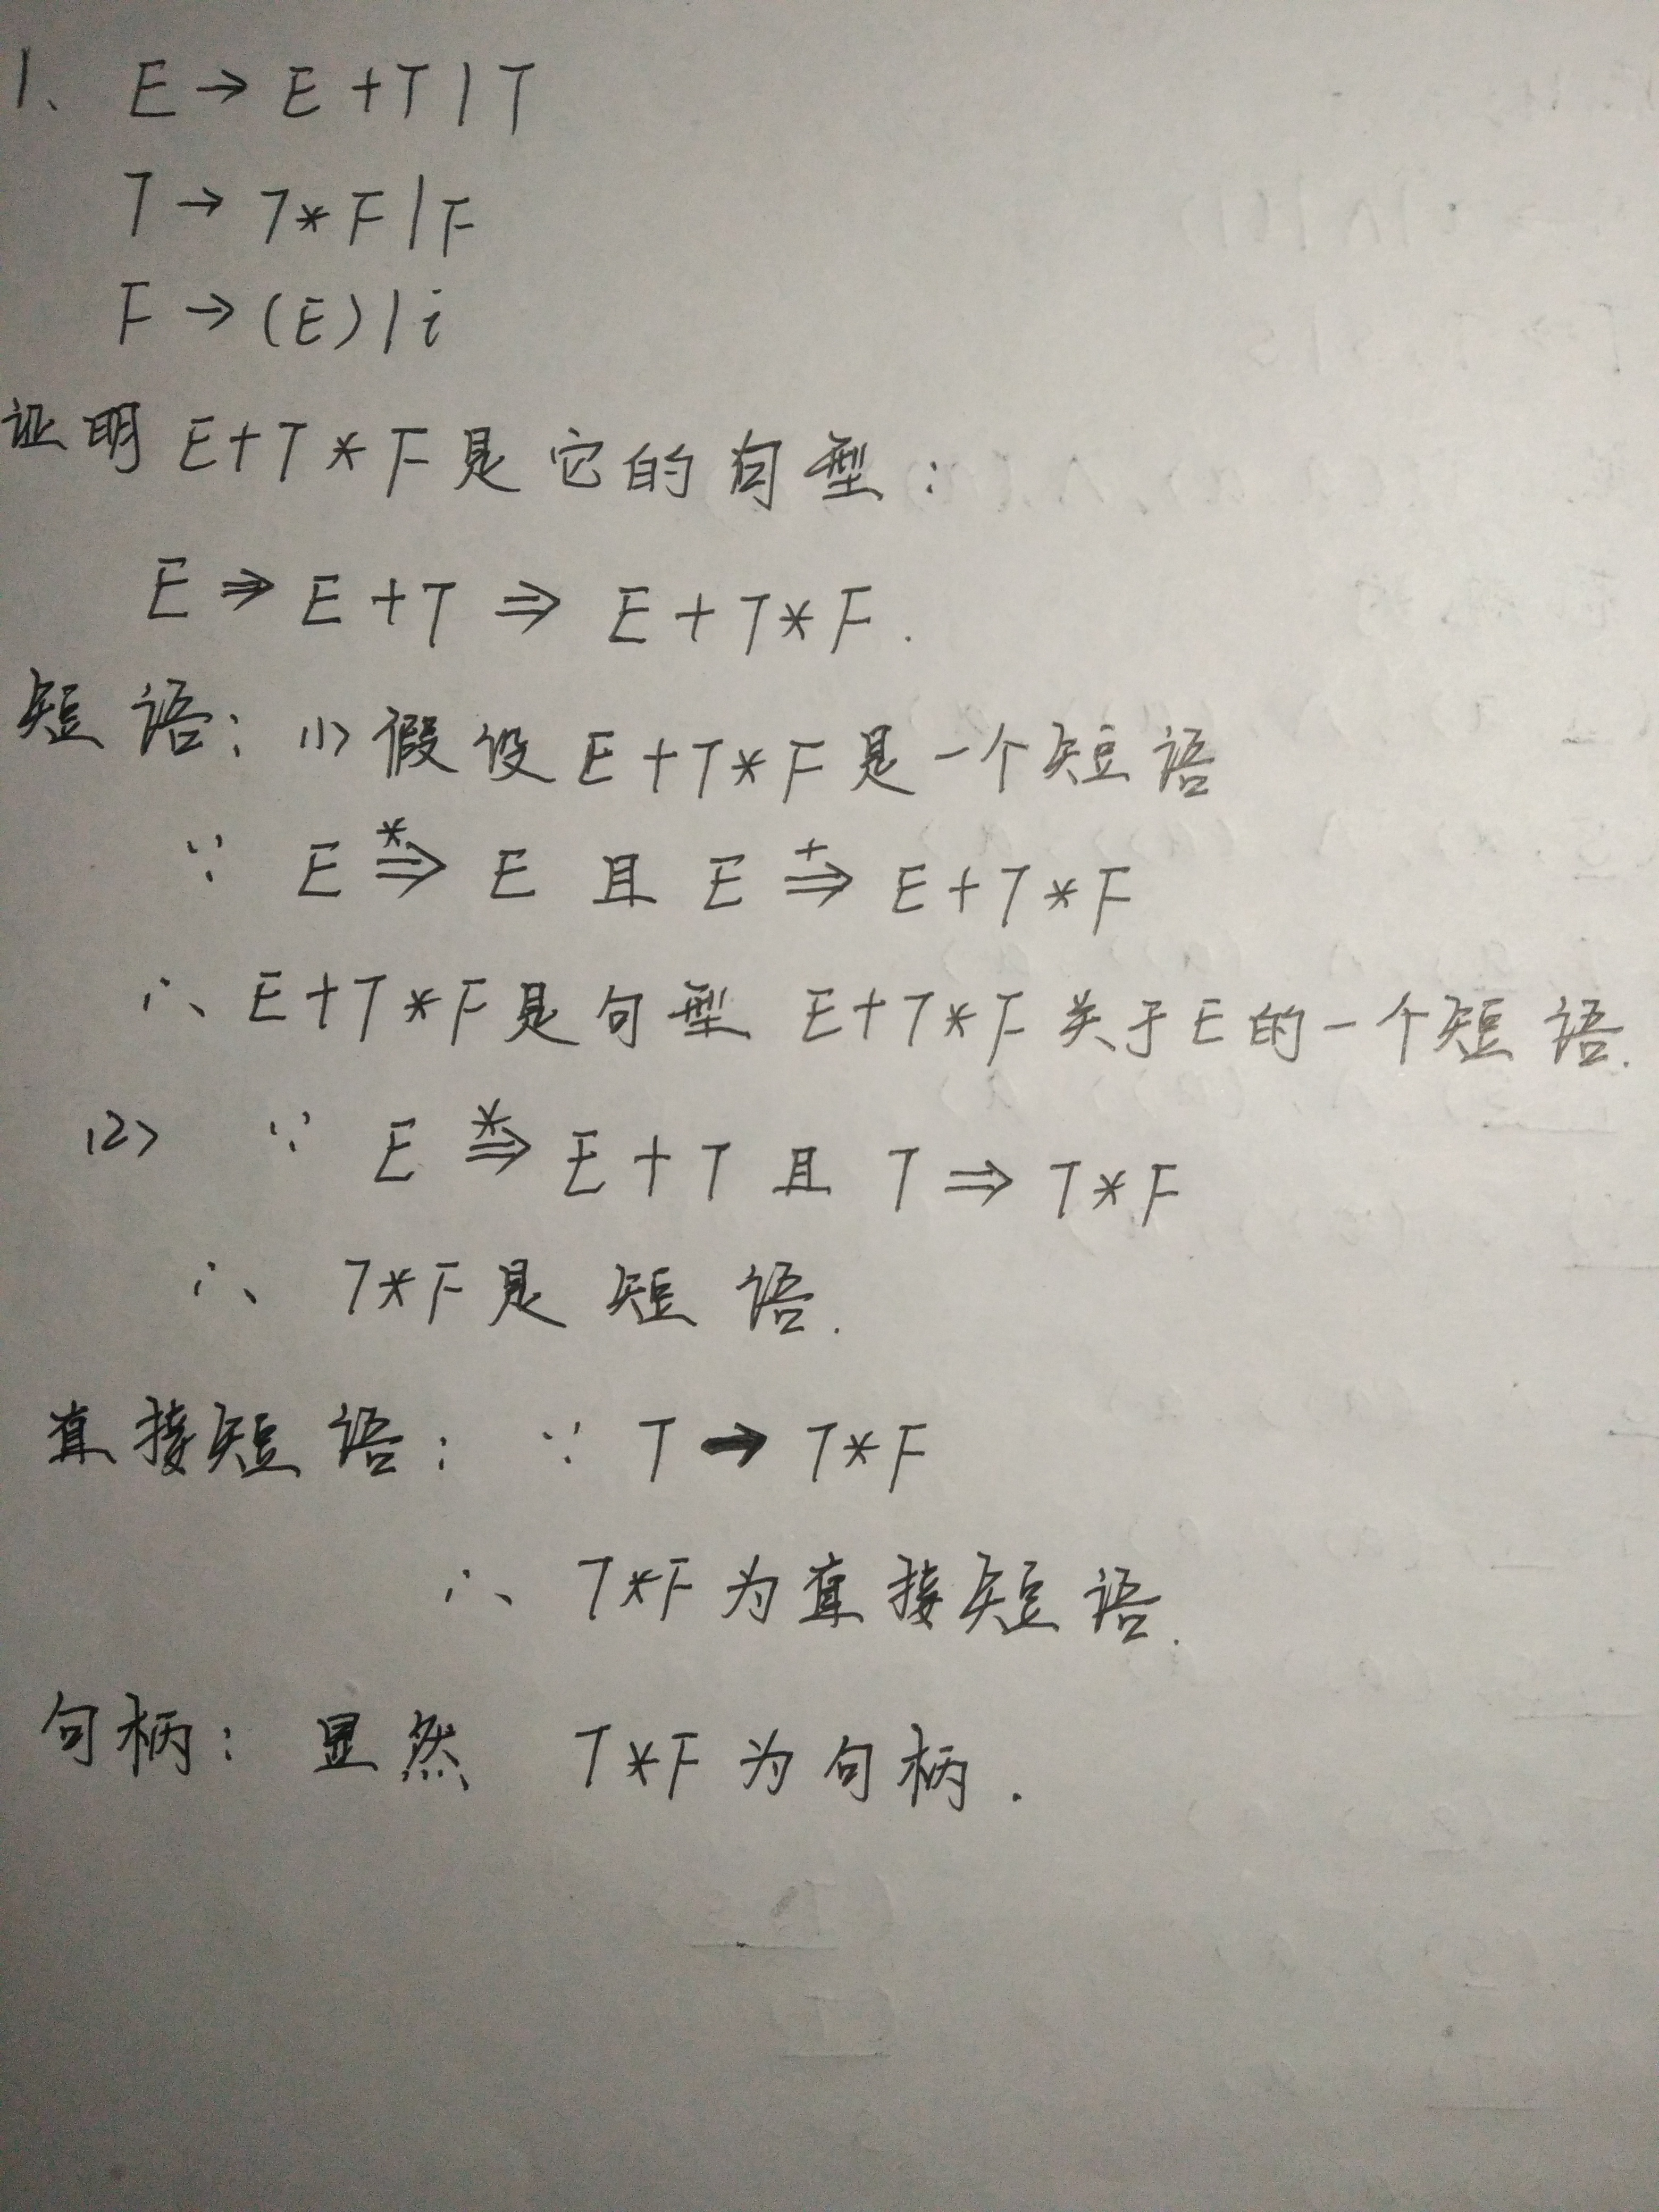 1、 E → E + T | T
T → T * F | F
F → (E) | i
证明 E+T*F是它的句型：
E ⇒ E + T ⇒ E + T * F .
短语： (1) 假设 E+T*F是一个短语
∵ E ⇒* E 且 E ⇒+ E+T*F
∴ E+T*F是句型 E+T*F关于E的一个短语.
(2) ∵ E ⇒* E + T 且 T ⇒ T*F
∴ T*F是短语.
直接短语： ∵ T → T*F
∴ T*F为直接短语.
句柄： 显然 T*F为句柄.